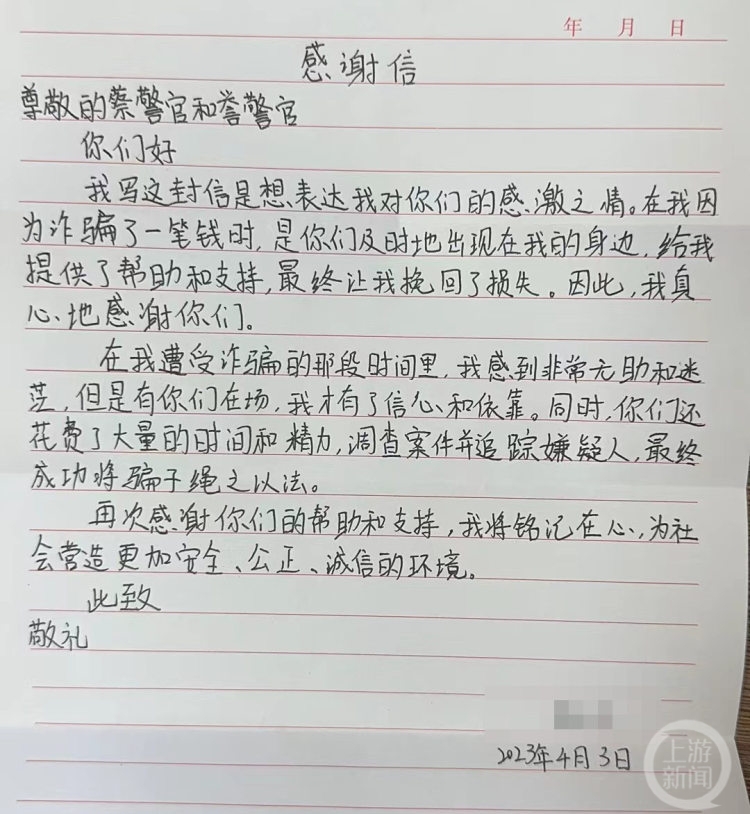 年 月 日
感谢信
尊敬的蔡警官和誉警官
你们好
我写这封信是想表达我对你们的感激之情。在我因
为诈骗了一笔钱时,是你们及时地出现在我的身边,给我
提供了帮助和支持,最终让我挽回了损失。因此,我真
心地感谢你们。
在我遭受诈骗的那段时间里,我感到非常无助和迷
茫,但是有你们在场,我才有了信心和依靠。同时,你们还
花费了大量的时间和精力,调查案件并追踪嫌疑人,最终
成功将骗子绳之以法。
再次感谢你们的帮助和支持,我将铭记在心,为社
会营造更加安全、公正、诚信的环境。
此致
敬礼
2023年4月3日
上游
新闻